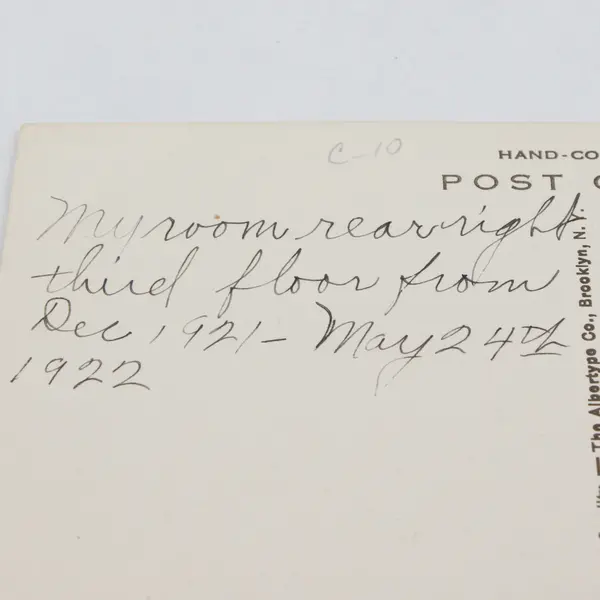 C-10
HAND-CO
POST C
My room rear right
third floor from
Dec 1921- May 24th
1922
The Albertype Co., Brooklyn, N. Y.